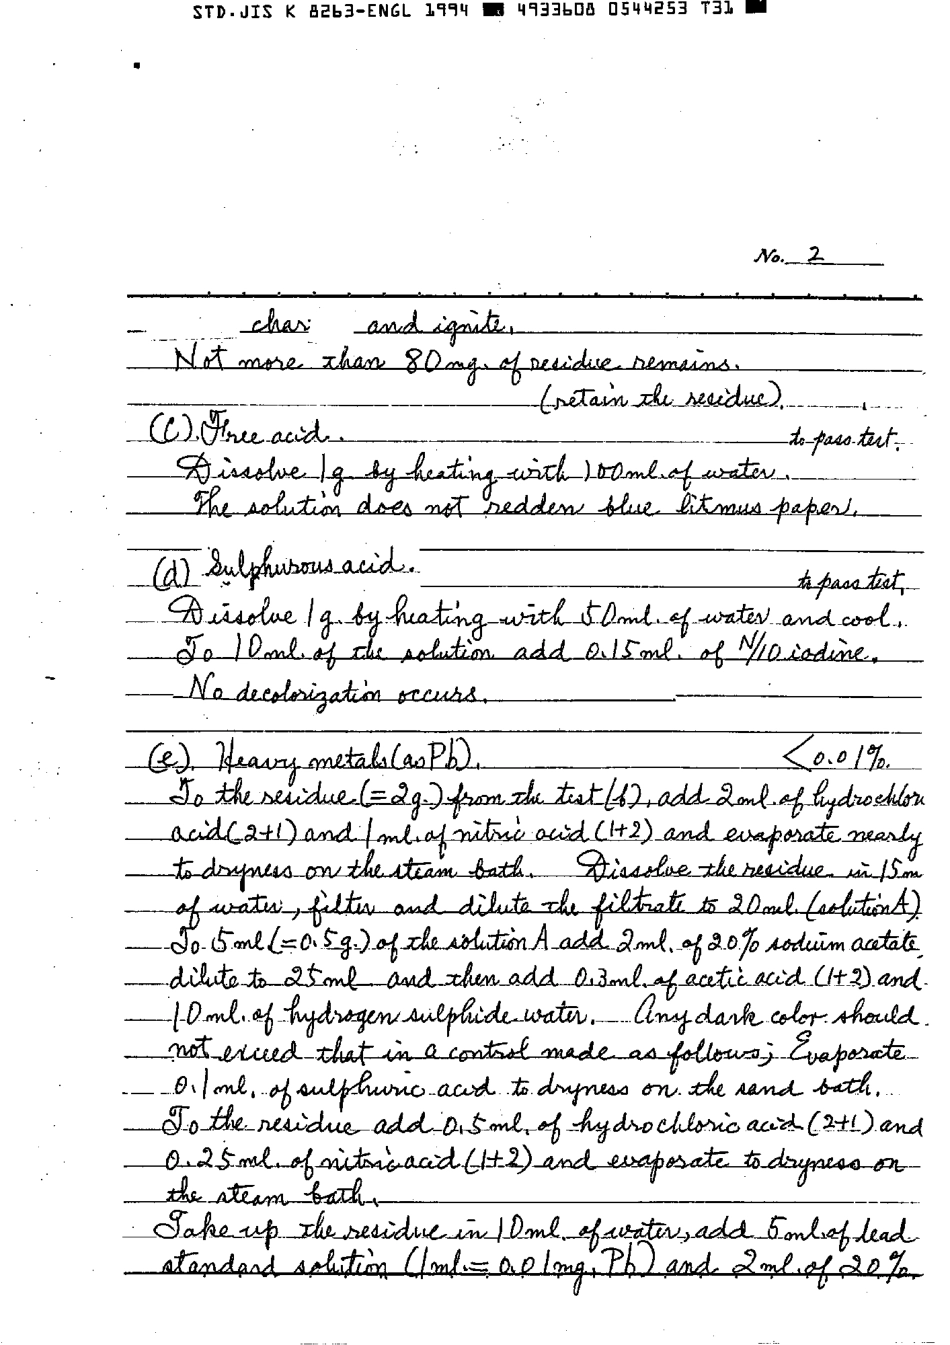 STD.JIS K 8263-ENGL 1994 4933608 0544253 T31
No. 2
char and ignite.
Not more than 80mg. of residue remains.
(retain the residue)
(C). Free acid. to pass test.
Dissolve 1g. by heating with 100ml. of water.
The solution does not redden blue litmus paper.
(d) Sulphurous acid. to pass test.
Dissolve 1g. by heating with 50ml. of water and cool.
To 10ml. of the solution add 0.15ml. of N/10 iodine.
No decolorization occurs.
(e). Heavy metals (as Pb). <0.01%.
To the residue (=2g.) from the test (b), add 2ml. of hydrochlor
acid (2+1) and 1ml. of nitric acid (1+2) and evaporate nearly
to dryness on the steam bath. Dissolve the residue in 15m
of water, filter and dilute the filtrate to 20ml. (solution A).
To 5ml (=0.5g.) of the solution A add 2ml. of 20% sodium acetate,
dilute to 25ml and then add 0.3ml. of acetic acid (1+2) and
10ml. of hydrogen sulphide water. Any dark color should
not exceed that in a control made as follows; Evaporate
0.1ml. of sulphuric acid to dryness on the sand bath.
To the residue add 0.5ml. of hydrochloric acid (2+1) and
0.25ml. of nitric acid (1+2) and evaporate to dryness on
the steam bath.
Take up the residue in 10ml. of water, add 5ml. of lead
standard solution (1ml. = 0.01mg. Pb) and 2ml. of 20%